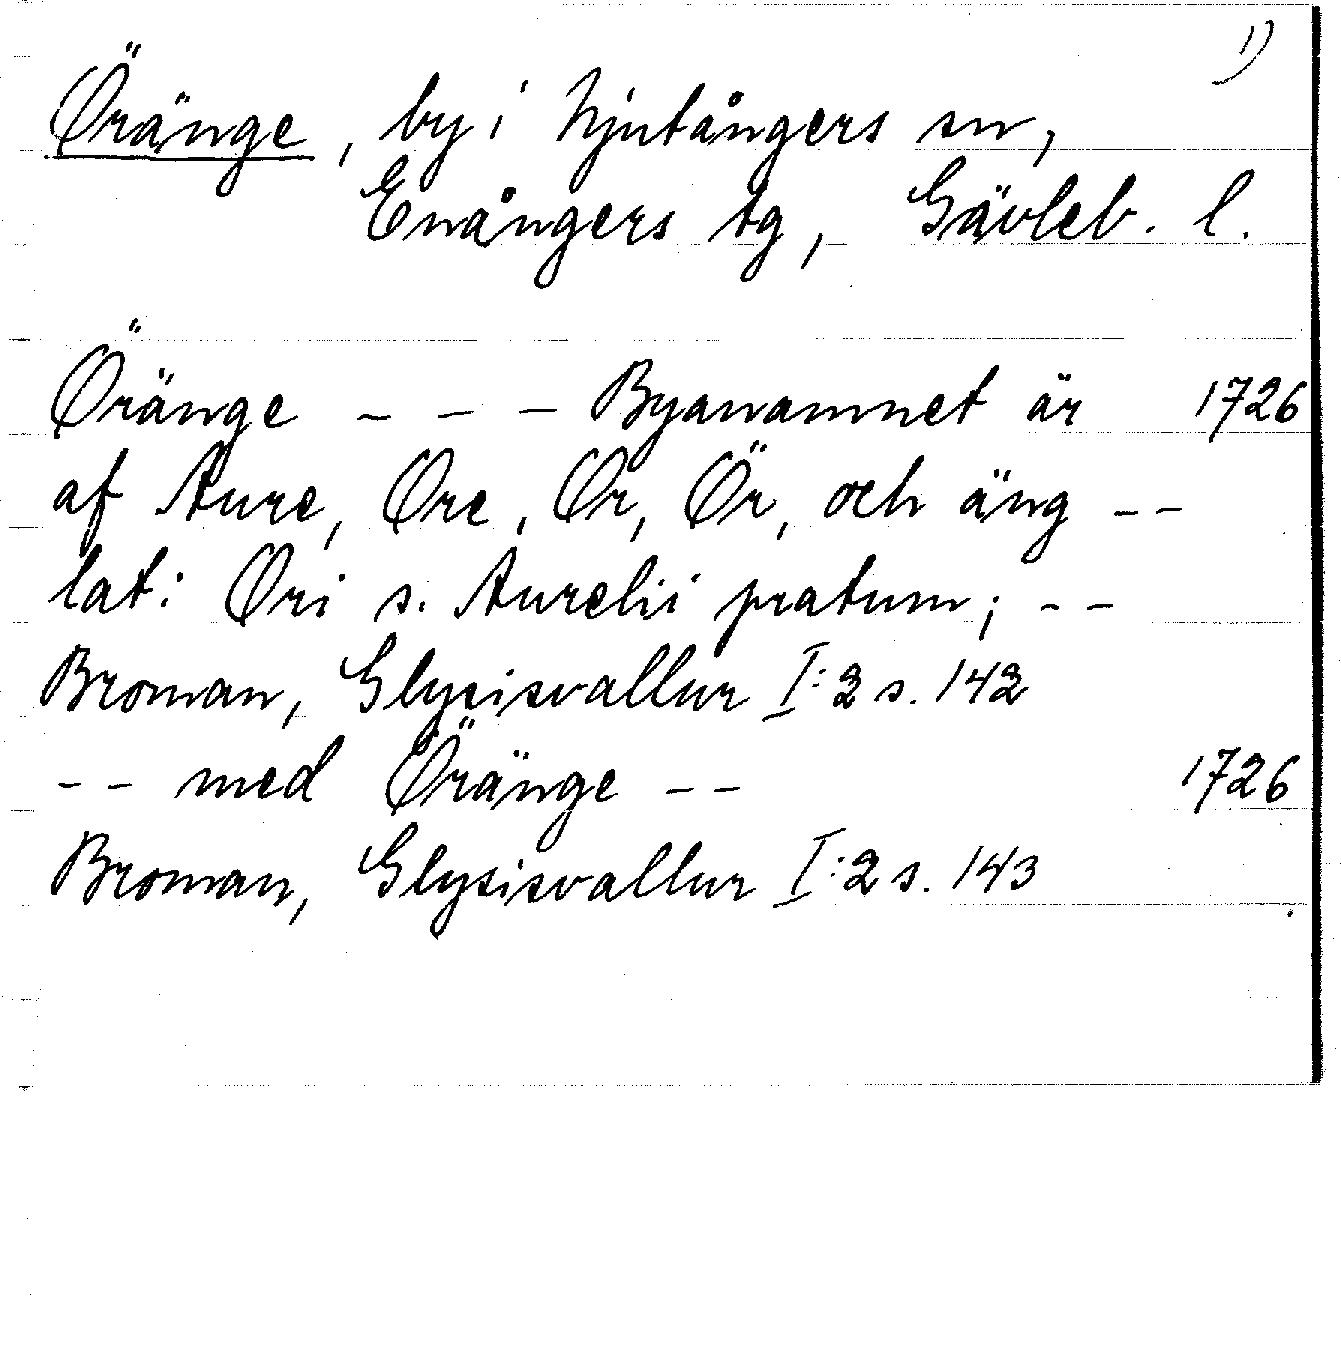 1)
Öränge, by i Njutångers sn,
Enångers tg, Gävleb. l.
Öränge - - - Byanamnet är 1726
af Aure, Øre, Ør, Ör, och äng --
lat: Øri s. Aurelii pratum; --
Broman, Glysisvallur I:2 s. 142
-- med Öränge -- 1726
Broman, Glysisvallur I:2 s. 143